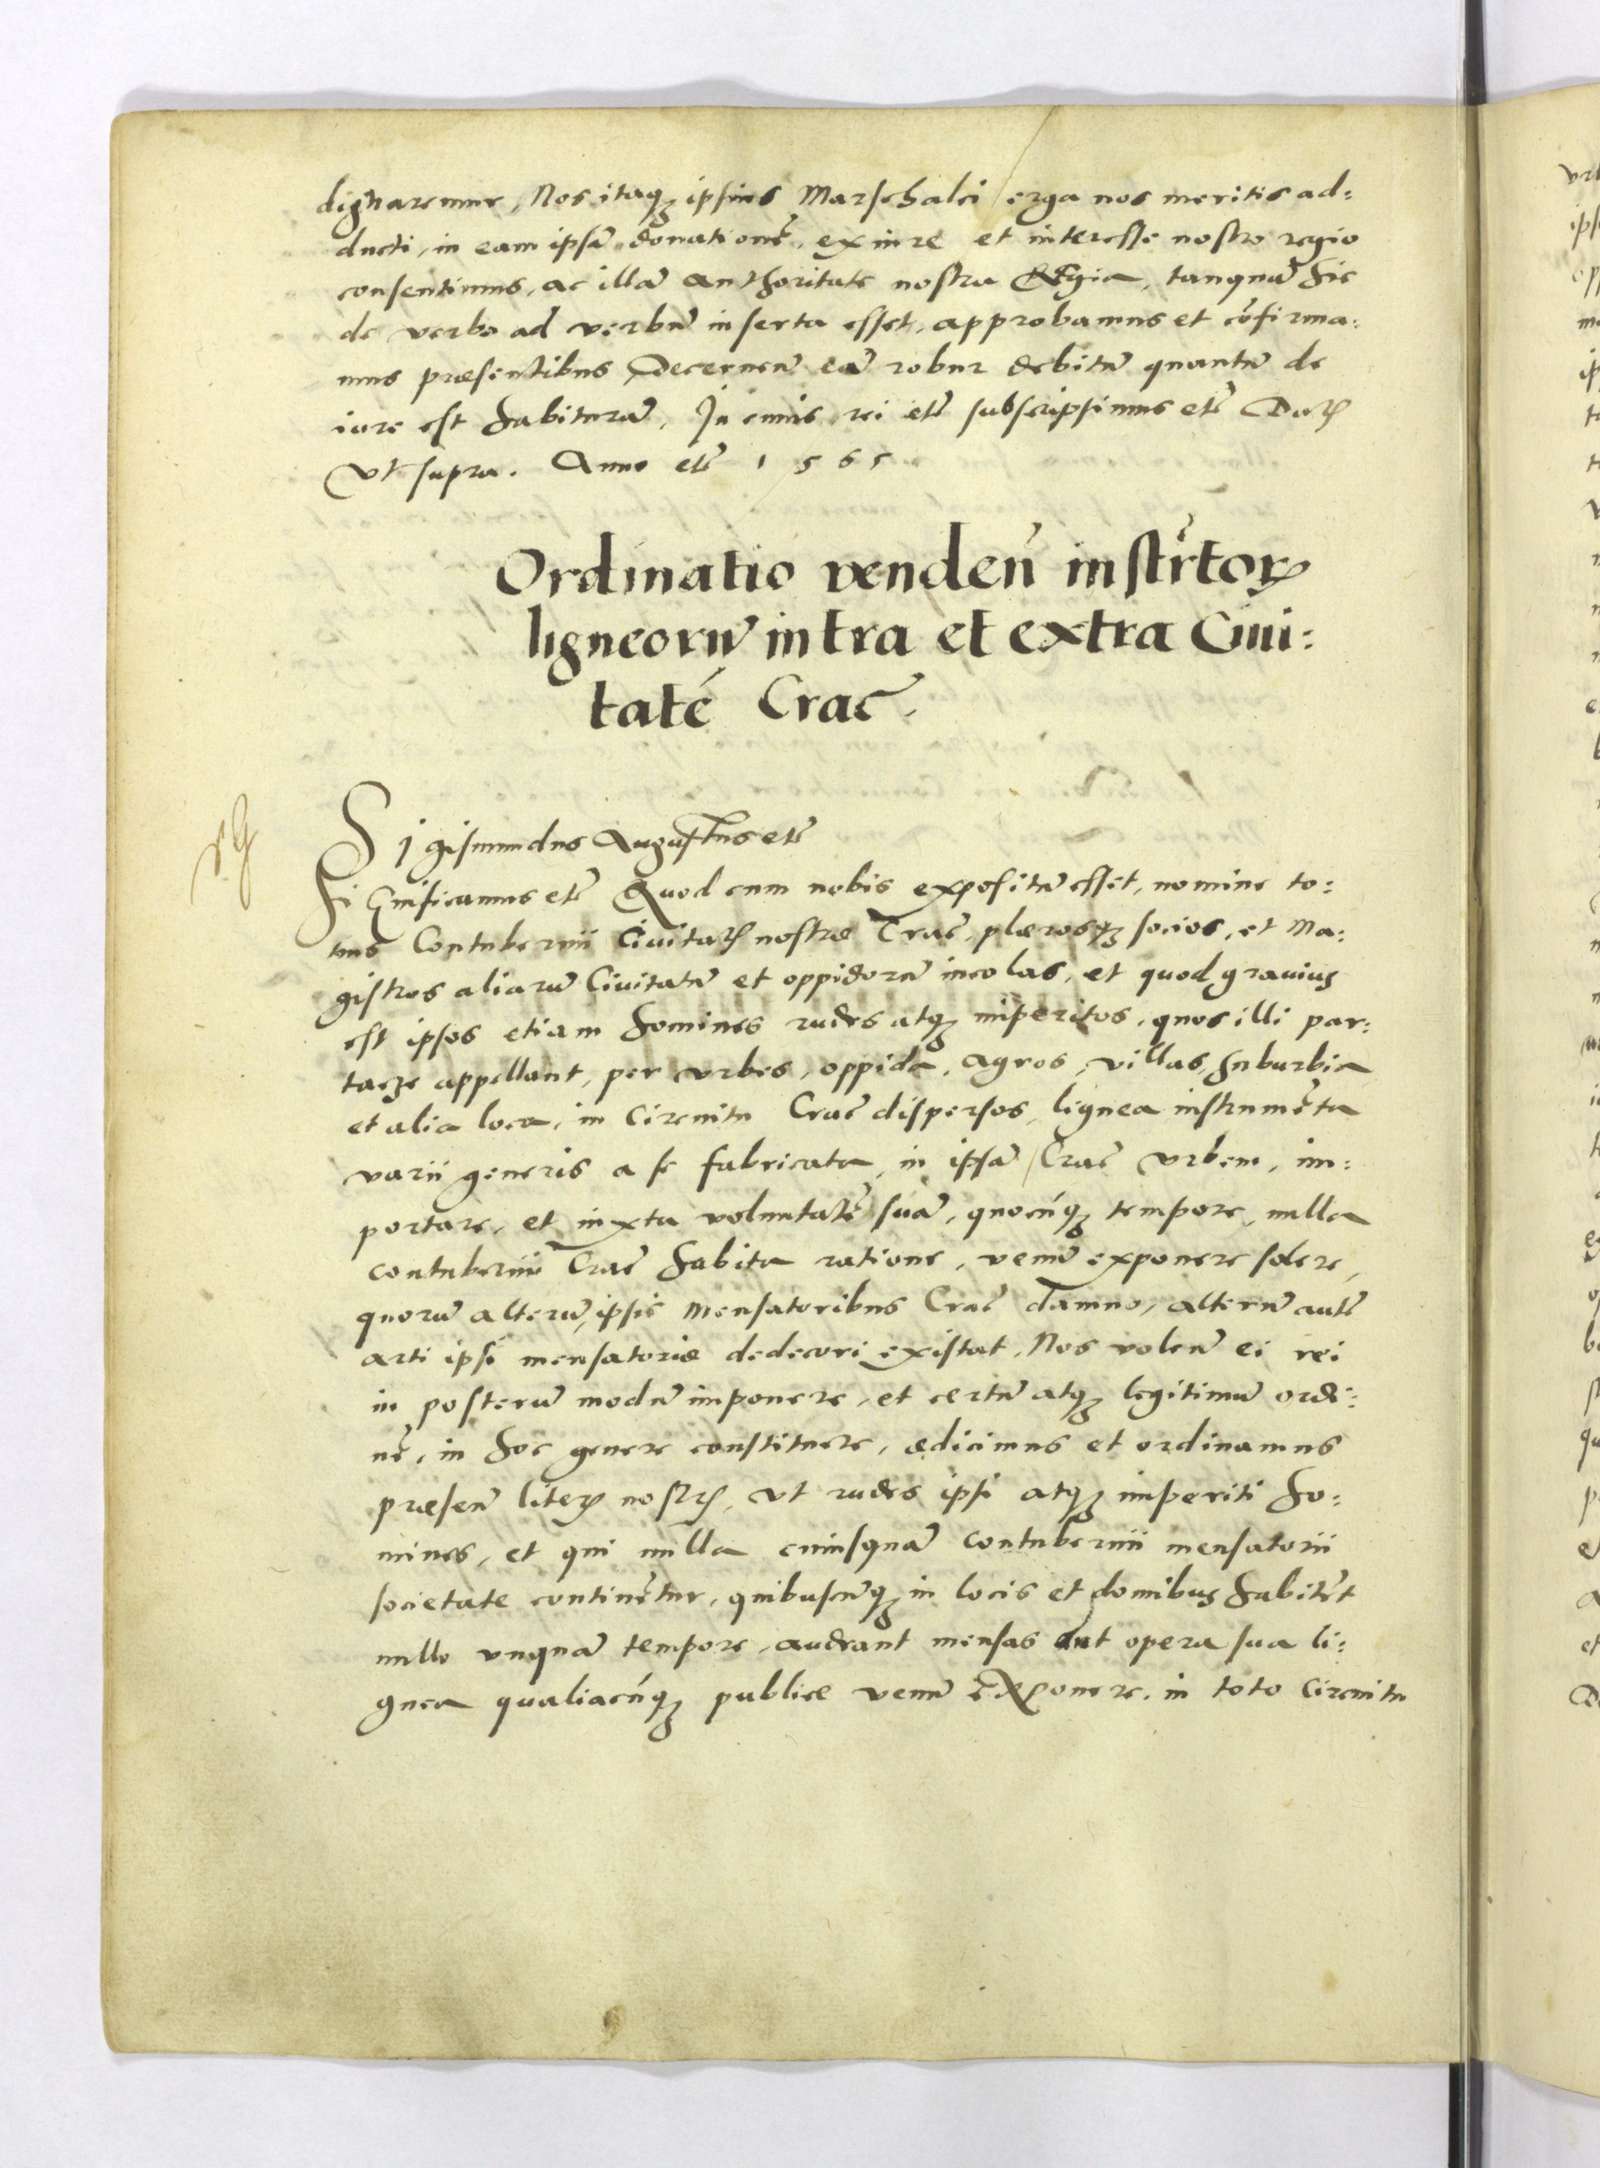 dignaremur, Nos itaqꝫ ipsius Marschalci erga nos meritis ad:
ducti, in eam ipsã donationẽ, ex iure et interesse nostro regio
consentimus, ac illã authoritate nostra Regia, tanquã hic
de verbo ad verbũ inserta esset, approbamus et cõfirma:
mus præsentibus Decernen̄ eã robur debitũ quantũ de
iure est habiturã, In cuius rei etc̃ subscripsimus etc̃ Datꝭ
Vt supra. Anno etc̃ 1565
Ordinatio venden̄ instr̃torꝭ
ligneorũ intra et extra Ciui:
tatẽ Crac̃.
Sigismundus Augustus etc̃
Significamus etc̃ Quod cum nobis expositũ esset, nomine to:
tius Contubernii Ciuitatꝭ nostræ Crac̃, plærosqꝫ socios, et Ma:
gistros aliarũ Ciuitatũ et oppidorũ incolas, et quod grauius
est ipsos etiam homines rudes atqꝫ imperitos, quos illi par:
tacze appellant, per vrbes, oppida, agros, villas, suburbia
et alia loca, in circuitu Crac̃ dispersos, lignea instrumẽta
varii generis a se fabricata, in ipsã Crac̃ vrbem, im:
portare, et iuxta voluntatẽ suã, quocũqꝫ tempore, nulla
contubernii Crac̃ habita ratione, venũ exponere solere,
quorũ alterũ, ipsis Mensatoribus Crac̃ damno, alterũ autẽ
arti ipsi mensatoriæ dedecori existat, Nos volen̄ ei rei
in posterũ modũ imponere, et certũ atqꝫ legitimũ ordi:
nẽ, in hoc genere constituere, ædicimus et ordinamus
præsen̄ literꝭ nostrꝭ, vt rudes ipsi atqꝫ imperiti ho:
mines, et qui nulla cuiusquã contubernii mensatorii
societate continẽtur, quibuscũqꝫ in locis et domibus habitẽt
nullo vnquã tempore, audeant mensas aut opera sua li:
gnea qualiacũqꝫ publice venũ exponere, in toto circuitu